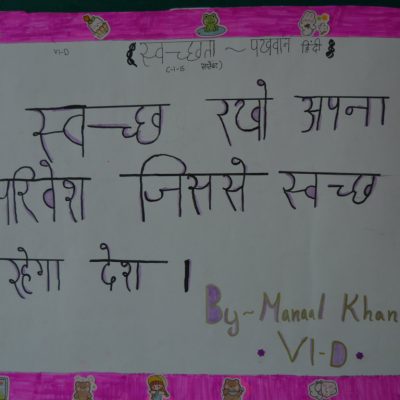 VI-D
स्वच्छता ~ पखवाड़ा हिंदी
स्वच्छ रखो अपना
परिवेश जिससे स्वच्छ
रहेगा देश ।
By~ Manaal Khan
• VI-D •